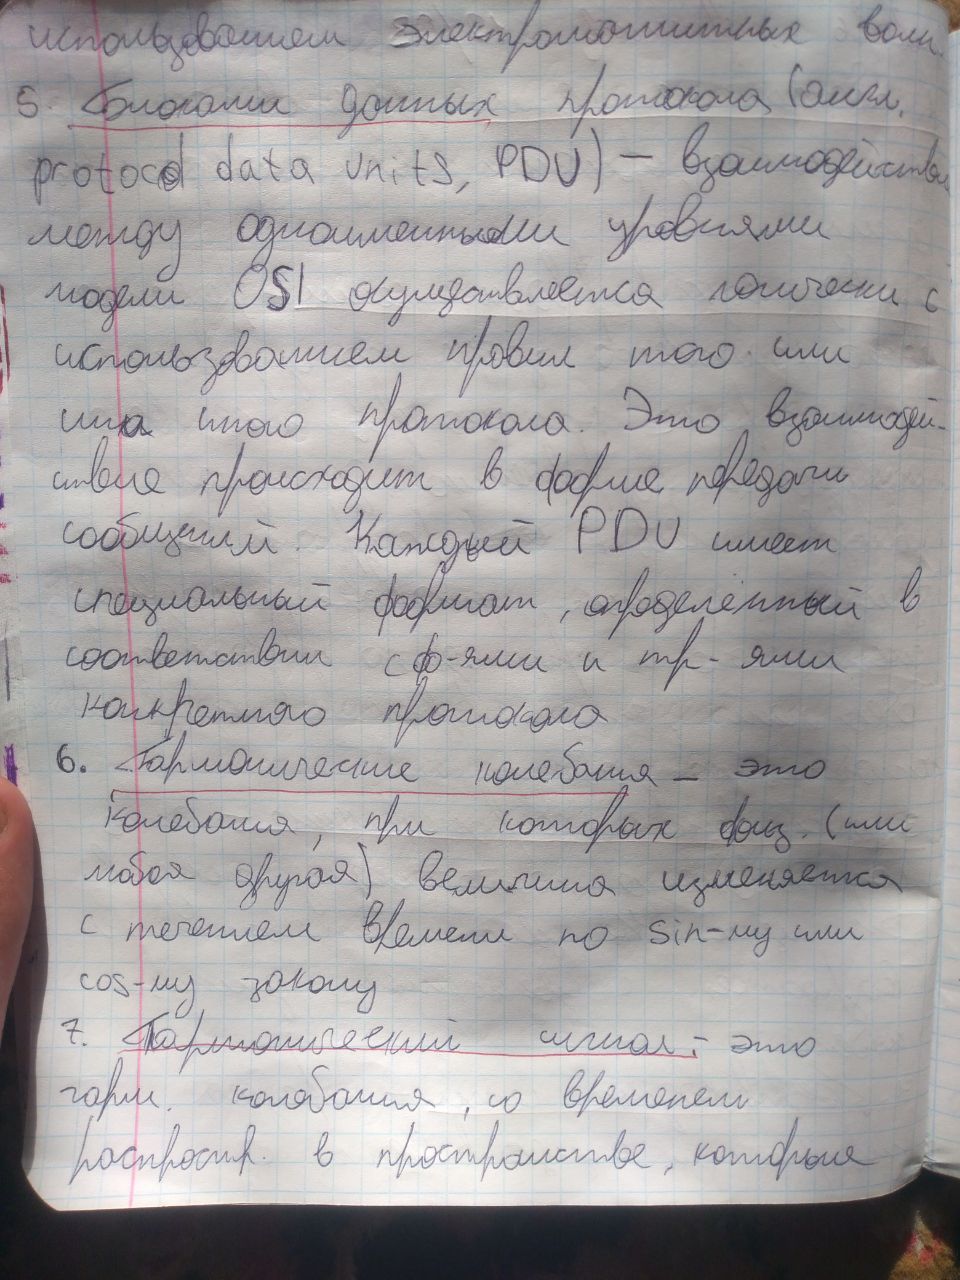 использованием электромагнитных волн.
5. Блоками данных протокола (англ.
protocol data units, PDU) — взаимодействие
между одноименными уровнями
модели OSI осуществляется логически с
использованием правил того или
ино иного протокола. Это взаимодей-
ствие происходит в форме передачи
сообщений. Каждый PDU имеет
специальный формат, определённый в
соответствии с ф-ями и тр-ями
конкретного протокола
6. Гармонические колебания – это
колебания, при которых физ. (или
любая другая) величина изменяется
с течением времени по sin-му или
cos-му закону
7. Гармонический сигнал – это
гарм. колебания, со временем
распростр. в пространстве, которые